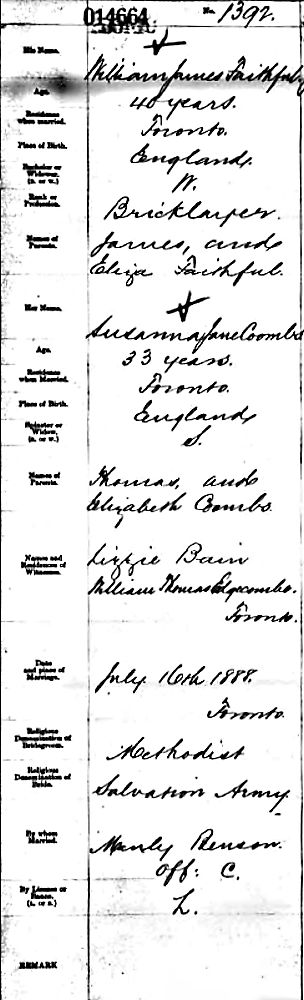 014664
No. 1392.
His Name.
William James Faithful
Age.
40 years.
Residence
when married.
Toronto.
Place of Birth.
England.
Bachelor or
Widower.
(B. or W.)
W.
Rank or
Profession.
Bricklayer.
Names of
Parents.
James, and
Eliza Faithful.
Her Name.
Susanna Jane Coombs
Age.
33 years.
Residence
when Married.
Toronto.
Place of Birth.
England
Spinster or
Widow.
(S. or W.)
S.
Names of
Parents.
Thomas, and
Elizabeth Combs.
Names and
Residences of
Witnesses.
Lizzie Bain
William Thomas Edgecombe.
Toronto.
Date
and place of
Marriage.
July 16th 1888.
Toronto.
Religious
Denomination of
Bridegroom.
Methodist
Religious
Denomination of
Bride.
Salvation Army.
By whom
Married.
Manly Benson.
Off: C.
By License or
Banns.
(L. or B.)
L.
REMARK